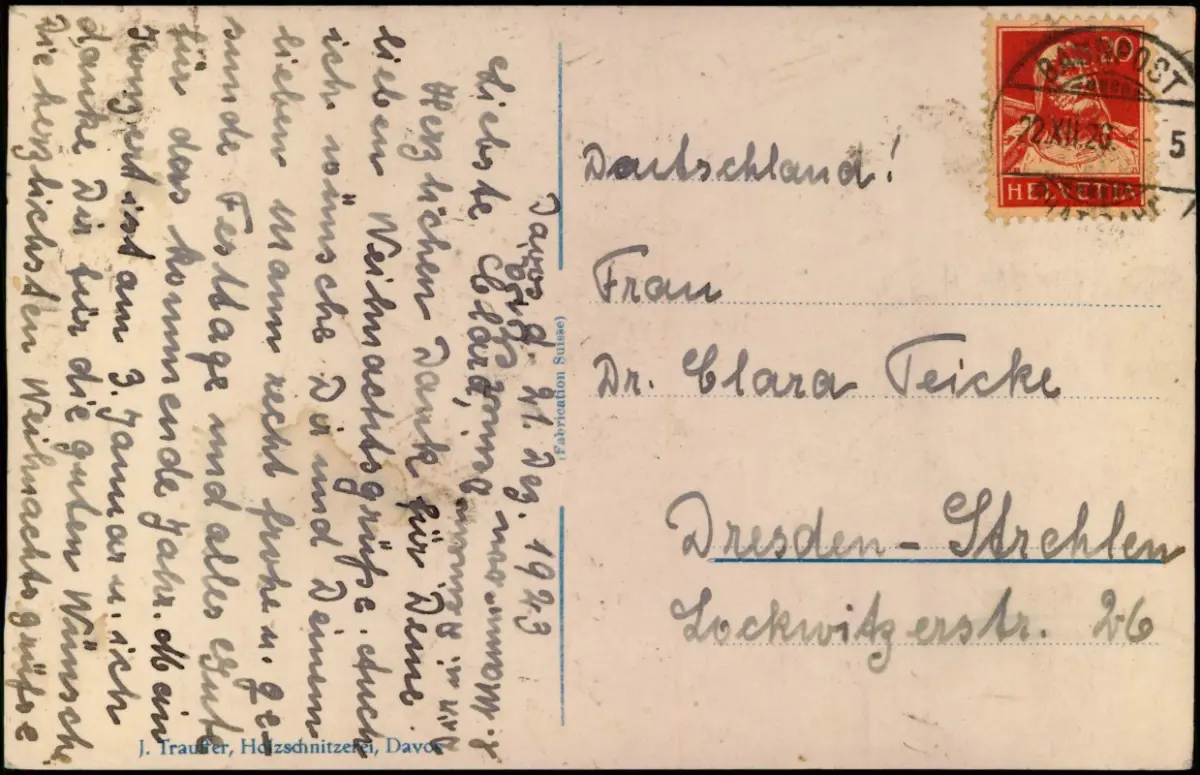 Davos d. 21. Dez. 1923
Liebste Clara,
Herzlichen Dank für Deine
lieben Weihnachtsgrüße. Auch
ich wünsche Dir und Deinem
lieben Mann recht frohe u. ge-
sunde Festtage und alles Gute
für das kommende Jahr. Mein
Konzert ist am 3. Januar u. ich
danke Dir für die guten Wünsche.
Die herzlichsten Weihnachtsgrüße
J. Trauffer, Holzschnitzerei, Davos
(Fabrication Suisse)
20
HELVETIA
BAHNPOST
22.XII.23.
5
Deutschland!
Frau
Dr. Clara Teicke
Dresden-Strehlen
Lockwitzerstr. 26